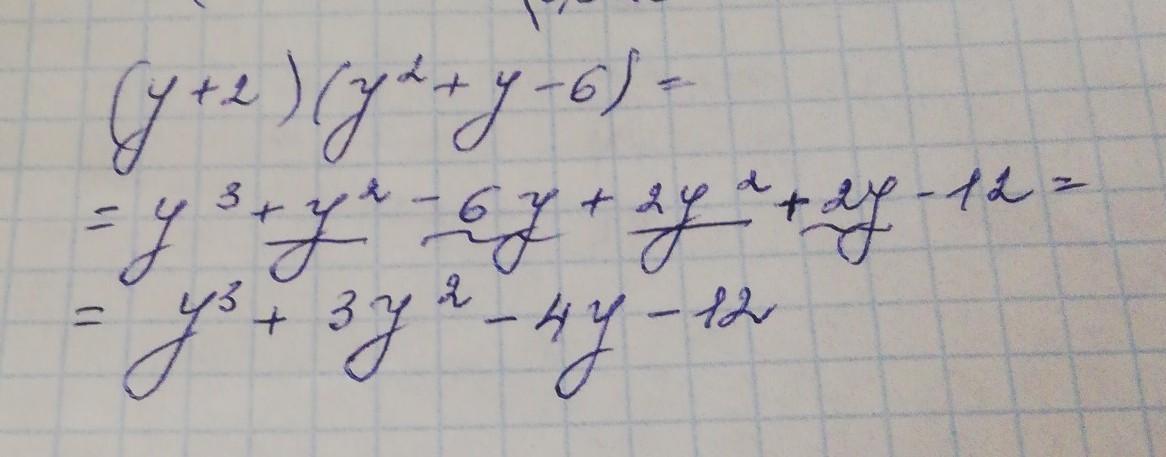 (y+2)(y²+y-6)=
=y³+y²-6y+2y²+2y-12=
=y³+3y²-4y-12